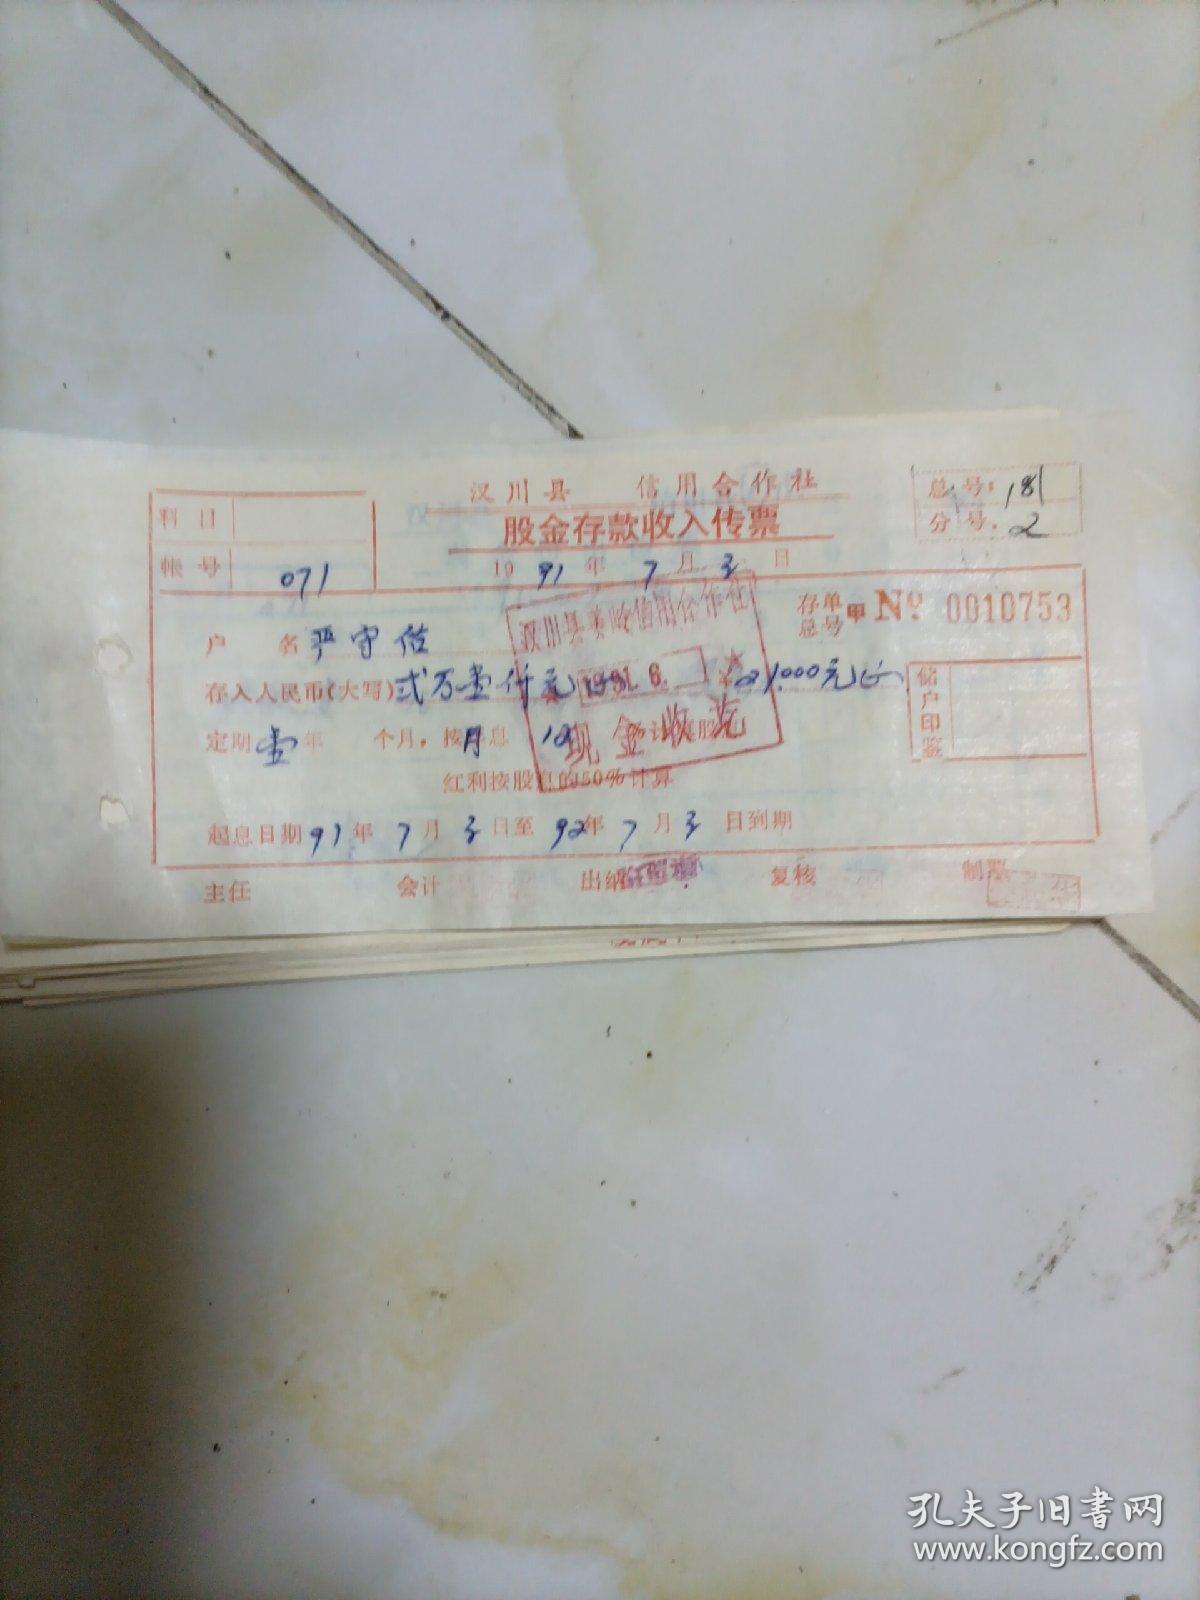 汉川县 信用合作社
股金存款收入传票
总号：181
分号．2
科目
帐号 071
1991年7月3日
存单总号 甲 No 0010753
户 名 严守
存入人民币(大写)弍万壹仟元 ¥21000元正
定期壹年 个月，按月息 12 计 股
红利按股息的50%计算
储户印鉴
起息日期91年7月3日至92年7月3日到期
汉川县 信用合作社
1991. 6.
现金收讫
主任 会计 出纳 复核 制票
孔夫子旧书网
www.kongfz.com